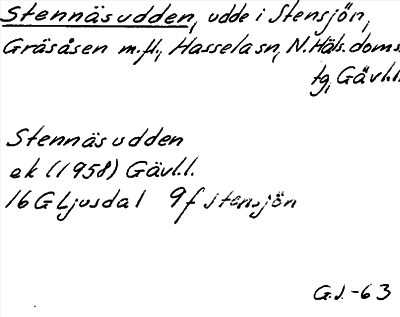 Stennäsudden, udde i Stensjön,
Gräsåsen m.fl., Hassela sn, N.Häls.doms.
tg, Gävl.l.
Stennäsudden
ek (1958) Gävl.l.
16G Ljusdal 9f Stensjön
G.J.-63